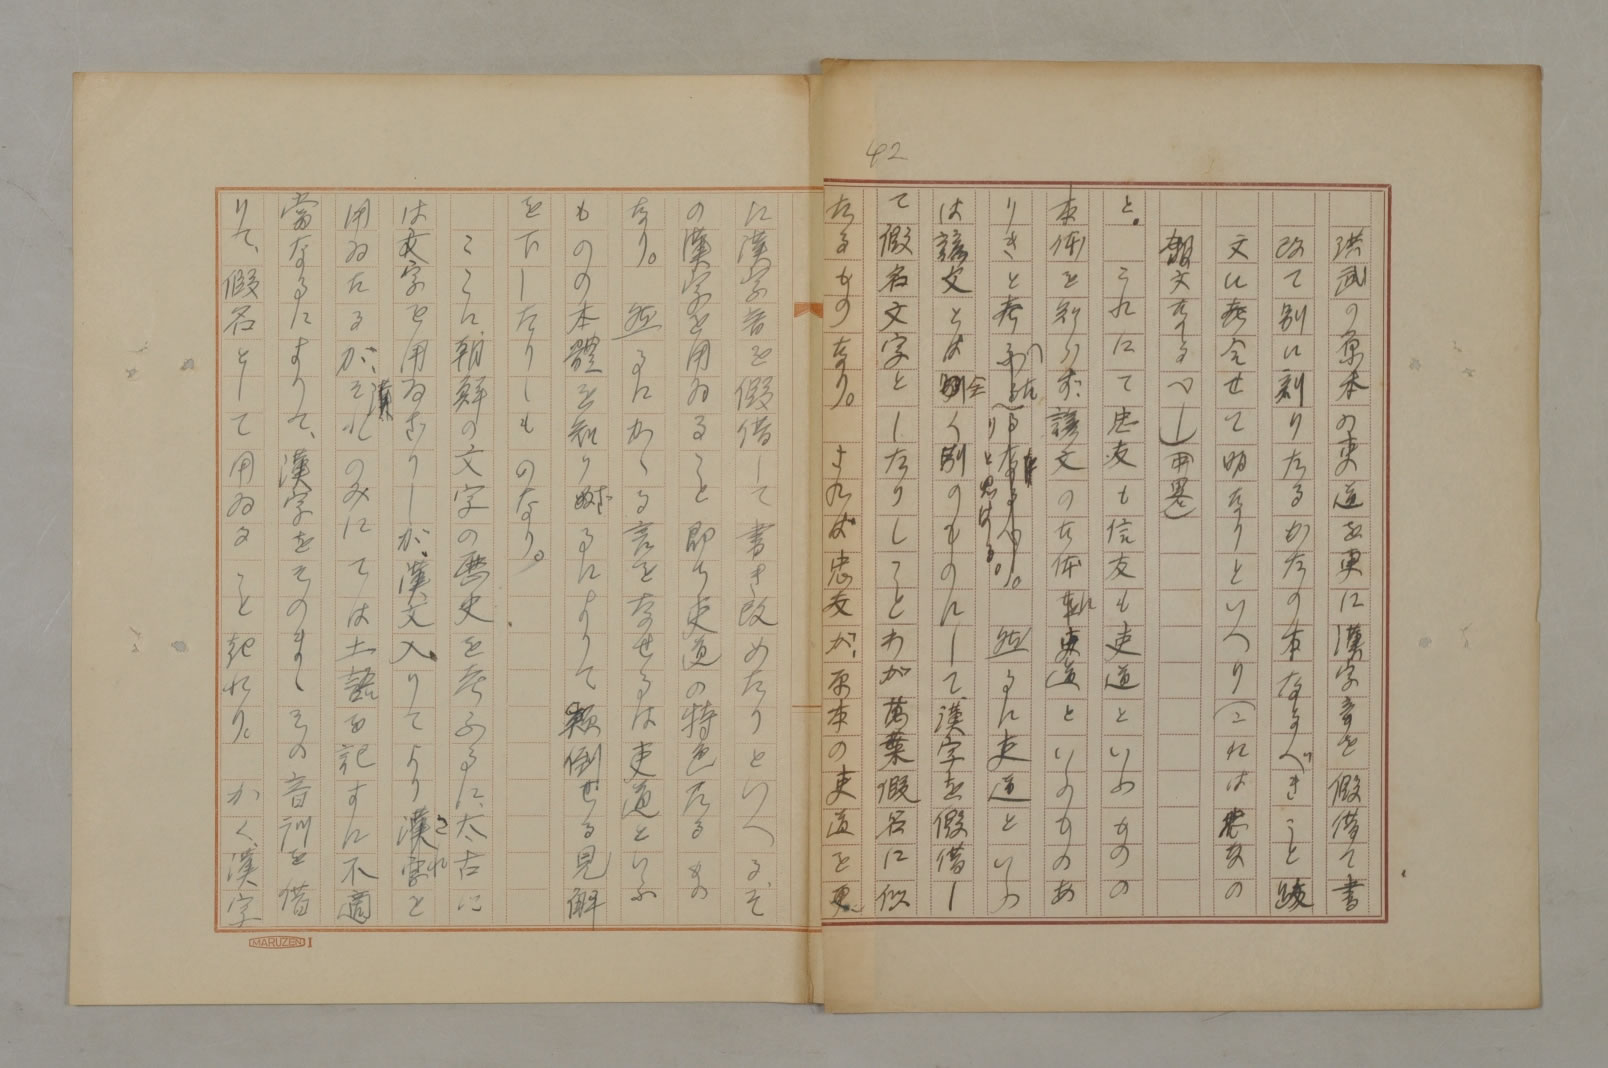 42
洪武の原本の吏道を更に漢字音を假借て書
改て別に刻りたるかたの本なるべきこと跋
文に考合せて明なりといへり(これは忠友の
説文なるべし)(中畧)
と。これにて忠友も信友も吏道といふものの
本体を知らず諺文の古体を吏道といふものあ
りきと考ふる
りと思はる。然るに吏道といふ
は諺文とは全く別のものにして、漢字を假借し
て假名文字としたりしことわが萬葉假名に似
たるものなり。されば忠友が、原本の吏道を更
に漢字音を假借して書き改めたりといへるぞ
の漢字を用ゐること即ち吏道の特色たるもの
なり。然るにかくる言をなせるは吏道といふ
ものの本體を知らざるによりて顛倒せる見解
を下したりしものなり。
ここに、朝鮮の文字の歴史を考ふるに、太古に
は文字を用ゐざりしが、漢文入りてより漢字を
用ゐたるが、されど漢のみにては土語を記すに不適
當なるによりて、漢字をそのまゝその音訓を借
りて、假名として用ゐること起れり。かく漢字
MARUZEN I